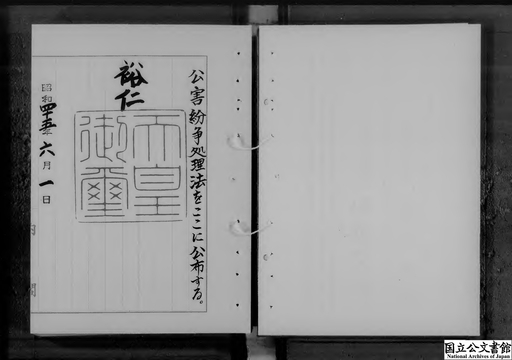 公害紛争処理法をここに公布する。
裕仁
天皇
御璽
昭和四十五年六月一日
国立公文書館
National Archives of Japan